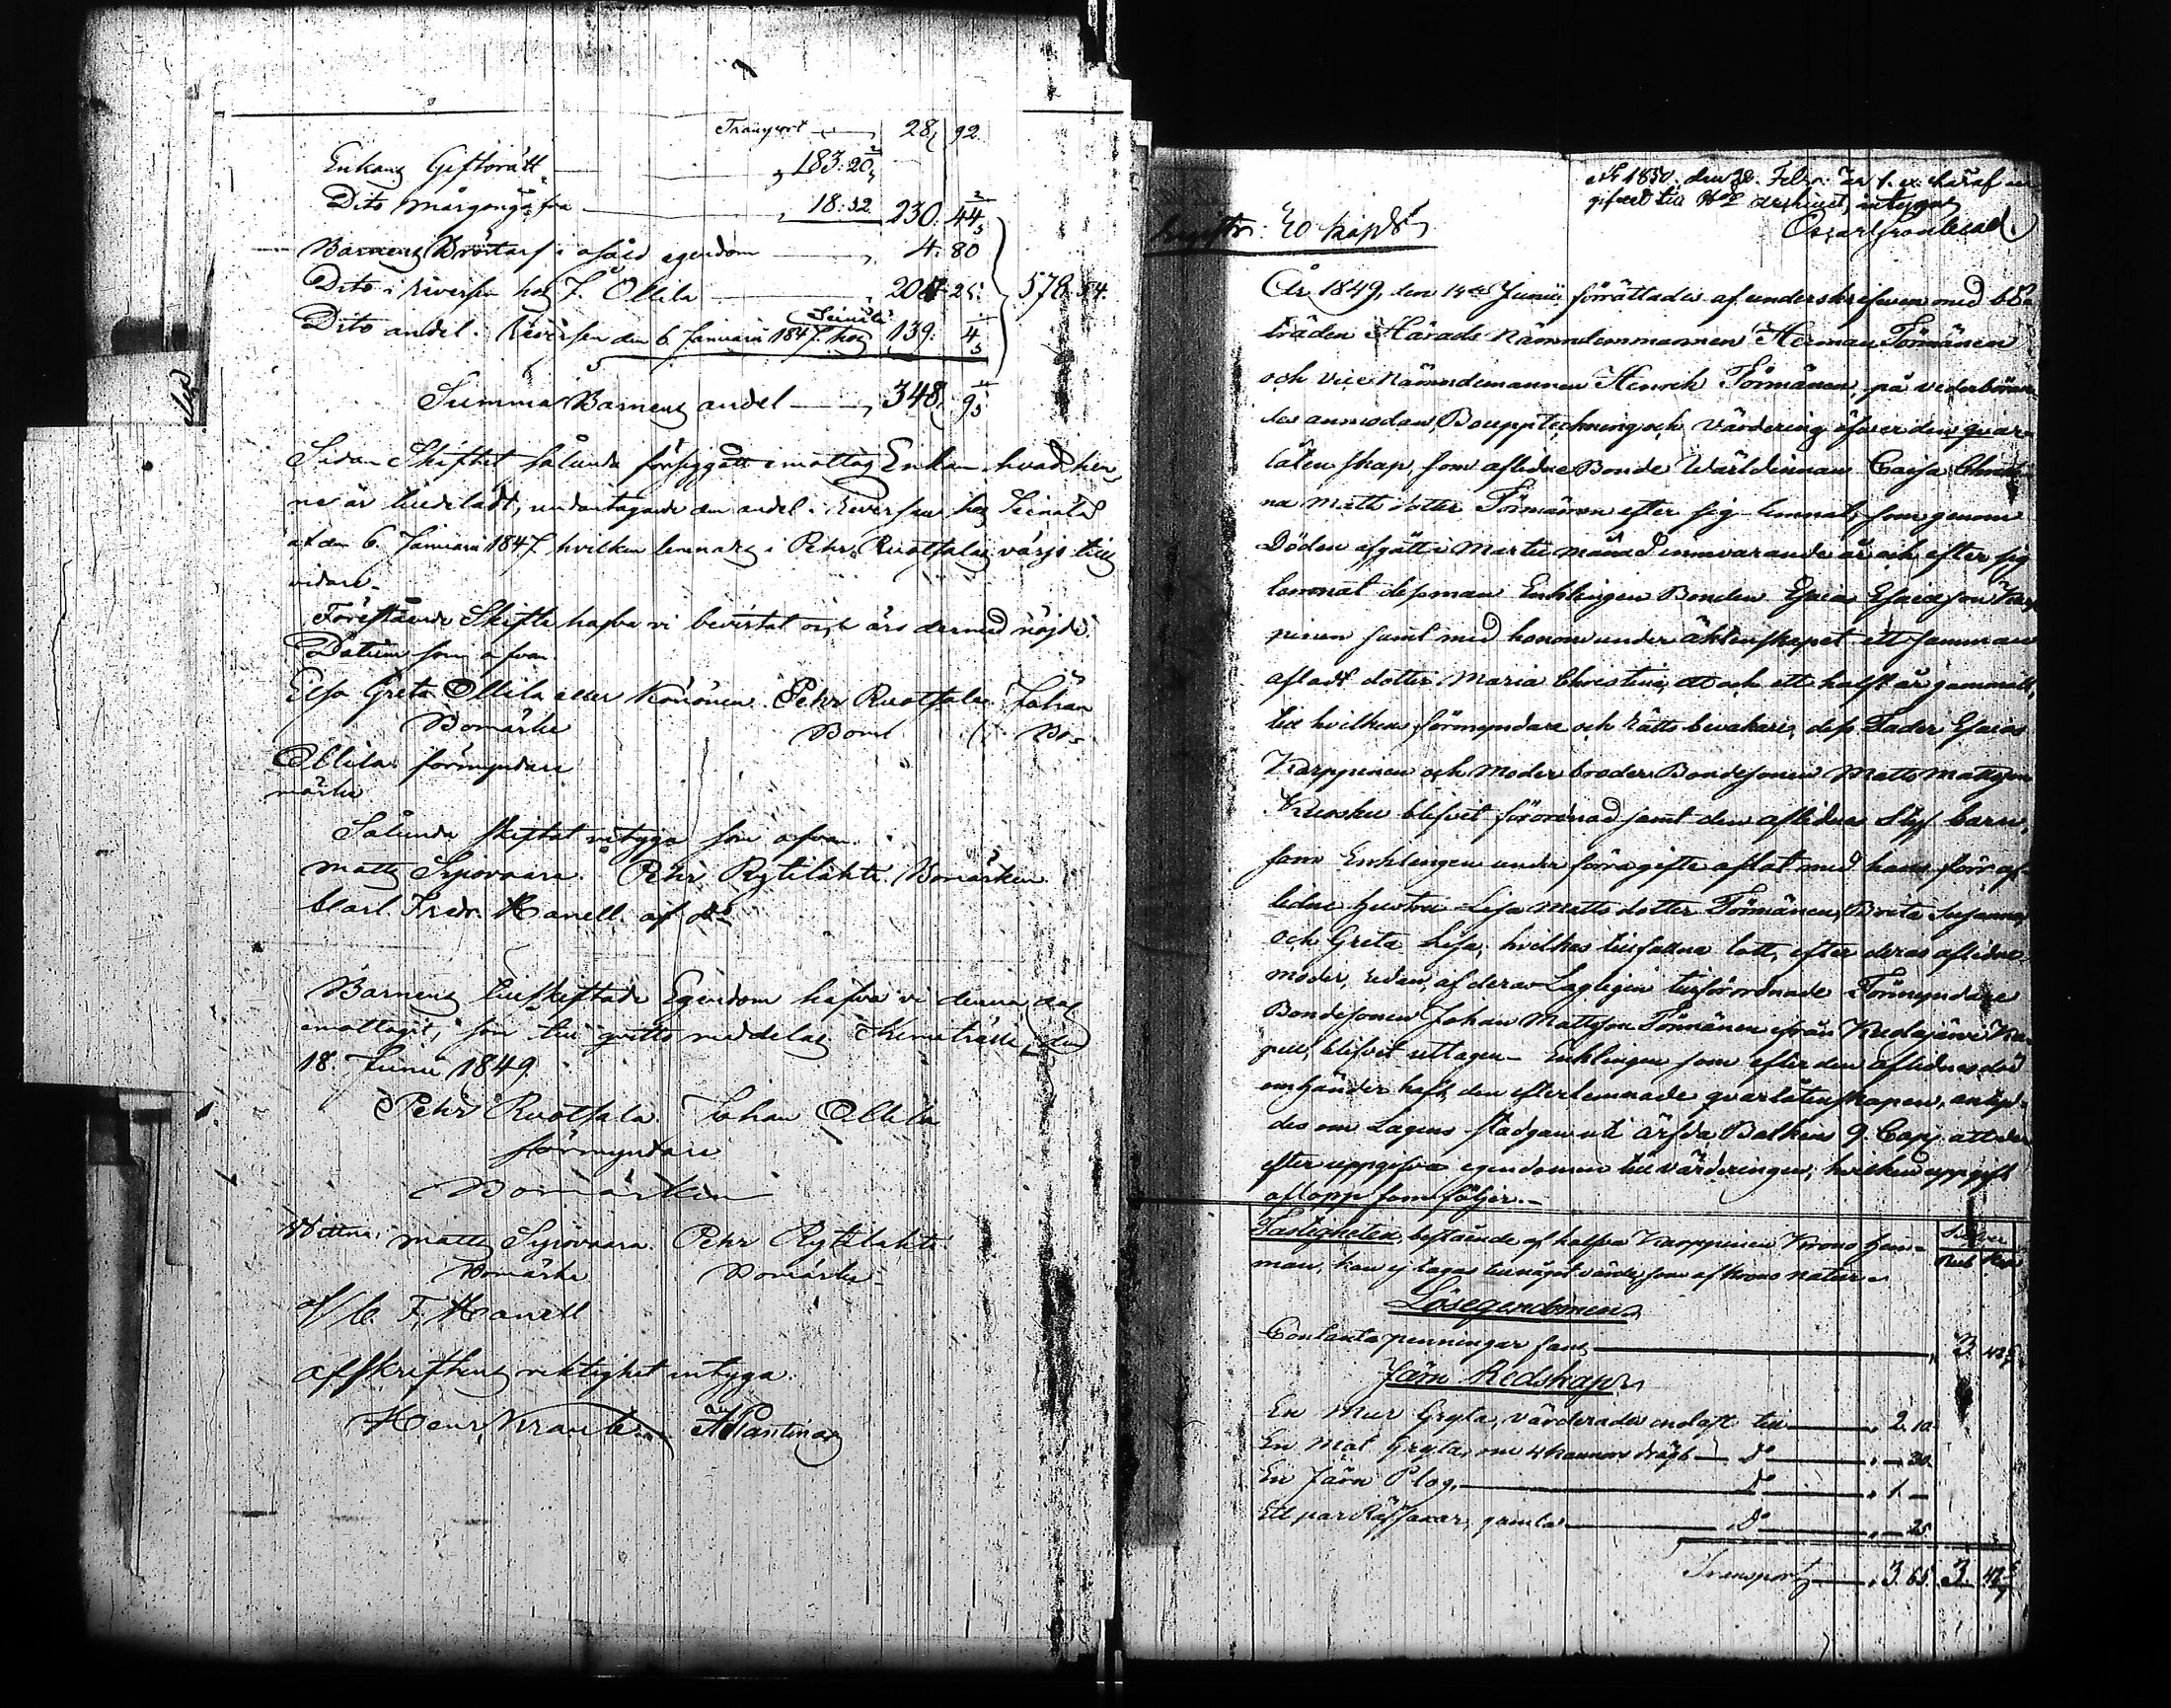 Transport 28, 92
Enkans Giftorätt 183: 20 2/7
Dito Morgongåfva 18: 32 230. 44
Barnens Bröstarf i osåld egendom 4. 80
Dito i Reversen hos J. Ollila 204. 25
578. 54.
Dito andel i Reversen den 6. Januari 1847. hos Seinälä 139. 4
Summa Barnens andel 348, 9
Sedan Skiftet sålunda försiggått emottog Enkan hvad hen-
ne är tilldeladt, undantagande en andel i Reversen hos Seinälä
af den 6. Januari 1847. hvilken lemnats i Pehr Ruotsalas värjo till
vidare.
Förestående Skifte hafva vi bevistat och äro dermed nöjde.
Datum som ofvan.
Elsa Greta Ollila eller Kononen. Pehr Ruotsala. Johan
Bomärke Bom Bo-
Ollila. förmyndare
märke
Sålunda skiftat intyga som ofvan.
Matts Sipovaara. Pehr Rytilahti. Bomärken
Carl Fredr. Hanell.
Barnens tillskiftade Egendom hafva vi denna dag
emottagit, som till qvitto meddelas. Kemiträsk den
18. Junii 1849.
Pehr Ruotsala. Johan Ollila
förmyndare
Bomärken
Wittna: Matts Sipovaara. Pehr Rytilahti.
Bomärke Bomärke
C. F. Hanell
Afskriftens riktighet intyga.
Henr. Kranck
År 1850. den 28. Febr. är 1. ex. häraf in-
gifvet till archivet, intygar
Oscar
20 kop. S.
År 1849, den 14de Junii förrättades af underskrefven med bi-
träden Härads Nämndemannen Herman Törmänen
och vice Nämndemannen Henrik Törmänen, på vederböran-
des anmodan, Bouppteckning och Värdering öfver den qvar-
låtenskap, som aflidne Bonde Wärdinnan Caisa Christi-
na Matts dotter Törmänen efter sig lemnat, som genom
Döden afgått i Martii månad innevarande år och efter sig
lemnat dess man Enklingen Bonden Esaias Esaiasson Karp-
pinen samt med honom under äktenskapet ett samman
afladt dotter Maria Christina, ett och ett halft år gammalt,
till hvilken förmyndare och rätts bevakare, dess Fader Esaias
Karppinen och Moder broder Bondesonen Matts Mattsson
Kuosku blifvit förordnad samt den aflidnas Styf barn,
som Enklingen under förra gifte aflat med hans förr af-
lidne hustru Lisa Matts dotter Törmänen, Brita Susanna,
och Greta Lisa, hvilkas tillfallna lott, efter deras aflidne
moder, redan af deras Lagligen tillförordnade Förmyndare
Bondesonen Johan Mattsson Törmänen ifrån Kuolajärvi Ka-
pell, blifvit uttagen. Enklingen som efter den aflidnas död
om händer haft den efterlemnade qvarlåtenskapen, antyd-
des om Lagens stadgan uti Ärfda Balkens 9. Cap. att der-
efter uppgifva egendomen till värderingen, hvilken uppgift
aflopp som följer.
Fastigheten, bestående af halfva Karppinen Krono hem-
man, kan ej tagas till något värde som af Krono natur.
Silfver
Rub. Kop.
Lösegendomen
Contanta penningar fans 3. 42
Järn Redskap
En Mur Gryta, värderades endast till 2. 10.
En Mat Gryta, om 4 kannors drägt Do 30.
En Järn Plog, Do 1. —
Ett par Räfsaxar, gamla Do 25
Transport 3. 65. 3. 42